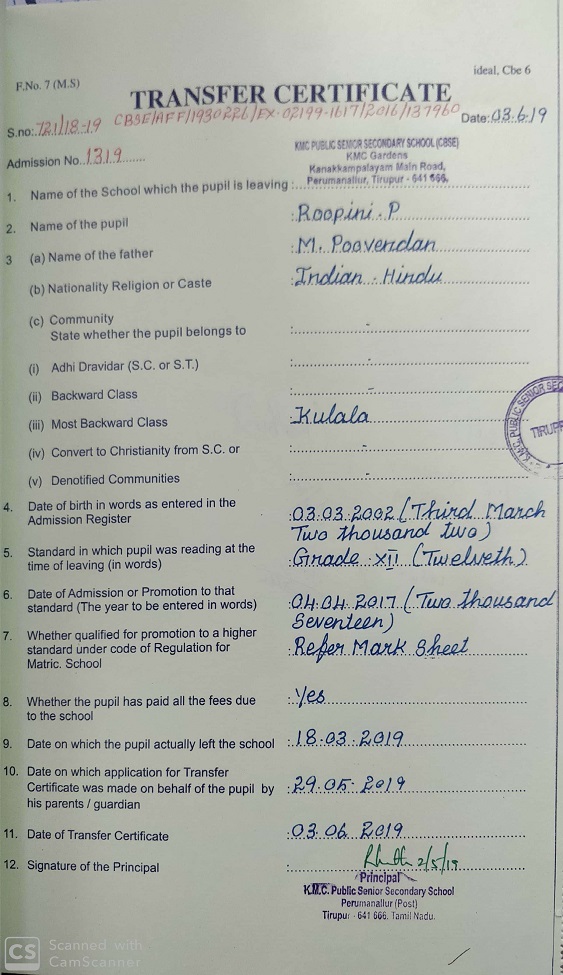 F.No. 7 (M.S)
ideal, Cbe 6
TRANSFER CERTIFICATE
S.no: 721/18-19 CBSE/AFF/1930226/EX-02199-1617/2016/137960 Date: 03.6.19
Admission No. 1319
KMC PUBLIC SENIOR SECONDARY SCHOOL (CBSE)
KMC Gardens
Kanakkampalayam Main Road,
Perumanallur, Tirupur - 641 666.
1. Name of the School which the pupil is leaving :
2. Name of the pupil : Roopini. P
3 (a) Name of the father : M. Poovendan
(b) Nationality Religion or Caste : Indian - Hindu
(c) Community
State whether the pupil belongs to : -
(i) Adhi Dravidar (S.C. or S.T.) : -
(ii) Backward Class : -
(iii) Most Backward Class : Kulala
(iv) Convert to Christianity from S.C. or : -
(v) Denotified Communities : -
K.M.C. PUBLIC SENIOR SEC
TIRUPP
4. Date of birth in words as entered in the : 03.03.2002 (Third March
Admission Register Two thousand two)
5. Standard in which pupil was reading at the : Grade XII (Twelveth)
time of leaving (in words)
6. Date of Admission or Promotion to that : 04.04.2017 (Two thousand
standard (The year to be entered in words) Seventeen)
7. Whether qualified for promotion to a higher : Refer Mark Sheet
standard under code of Regulation for
Matric. School
8. Whether the pupil has paid all the fees due : Yes
to the school
9. Date on which the pupil actually left the school : 18.03.2019
10. Date on which application for Transfer
Certificate was made on behalf of the pupil by : 29.05.2019
his parents / guardian
11. Date of Transfer Certificate : 03.06.2019
12. Signature of the Principal : 2/5/19
Principal
K.M.C. Public Senior Secondary School
Perumanallur (Post)
Tirupur - 641 666. Tamil Nadu.
CS Scanned with
CamScanner